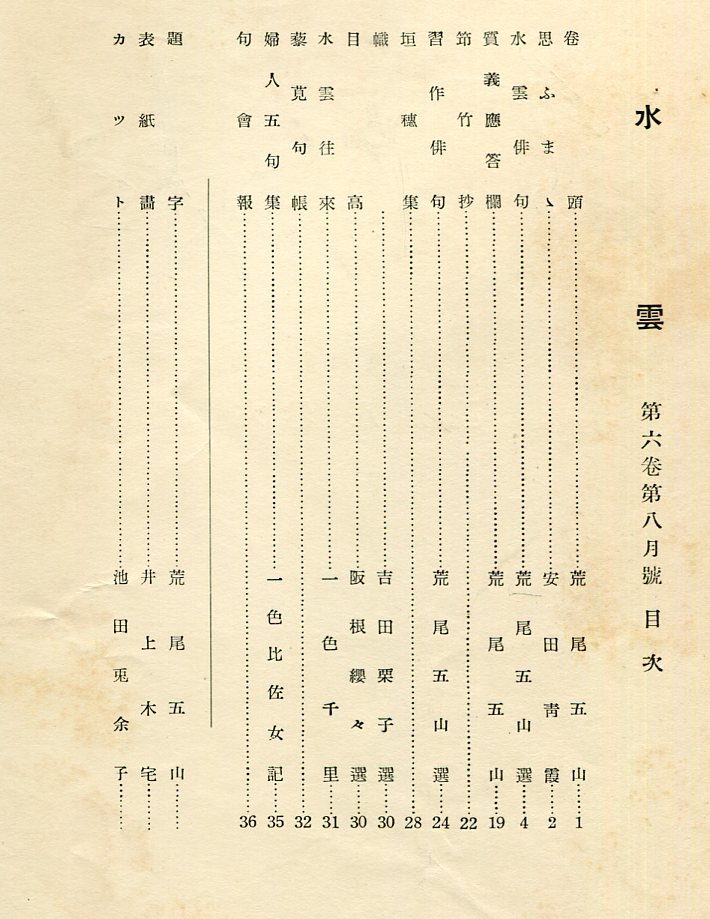 水雲 第六卷第八月號 目次
卷頭……荒尾五山……1
思ふまゝ……安田靑霞……2
水雲俳句……荒尾五山選……4
質義應答欄……荒尾五山……19
笻竹抄……22
習作俳句……荒尾五山選……24
垣穗集……28
幟……吉田栗子選……30
目高……阪根纓々選……30
水雲往來……一色千里……31
藜莧句帳……32
婦人五句集……一色比佐女記……35
句會報……36
題字……荒尾五山……
表紙畵……井上木宅……
カット……池田兎余子……